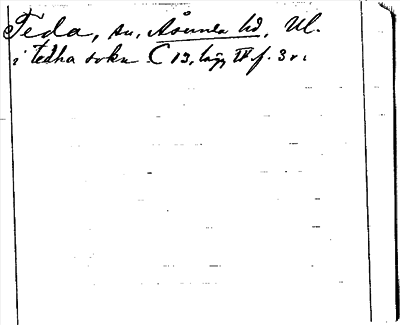 Teda, sn, Åsunda hd, Ul.
i tedha sokn C 13, lägg IV f. 3 v.